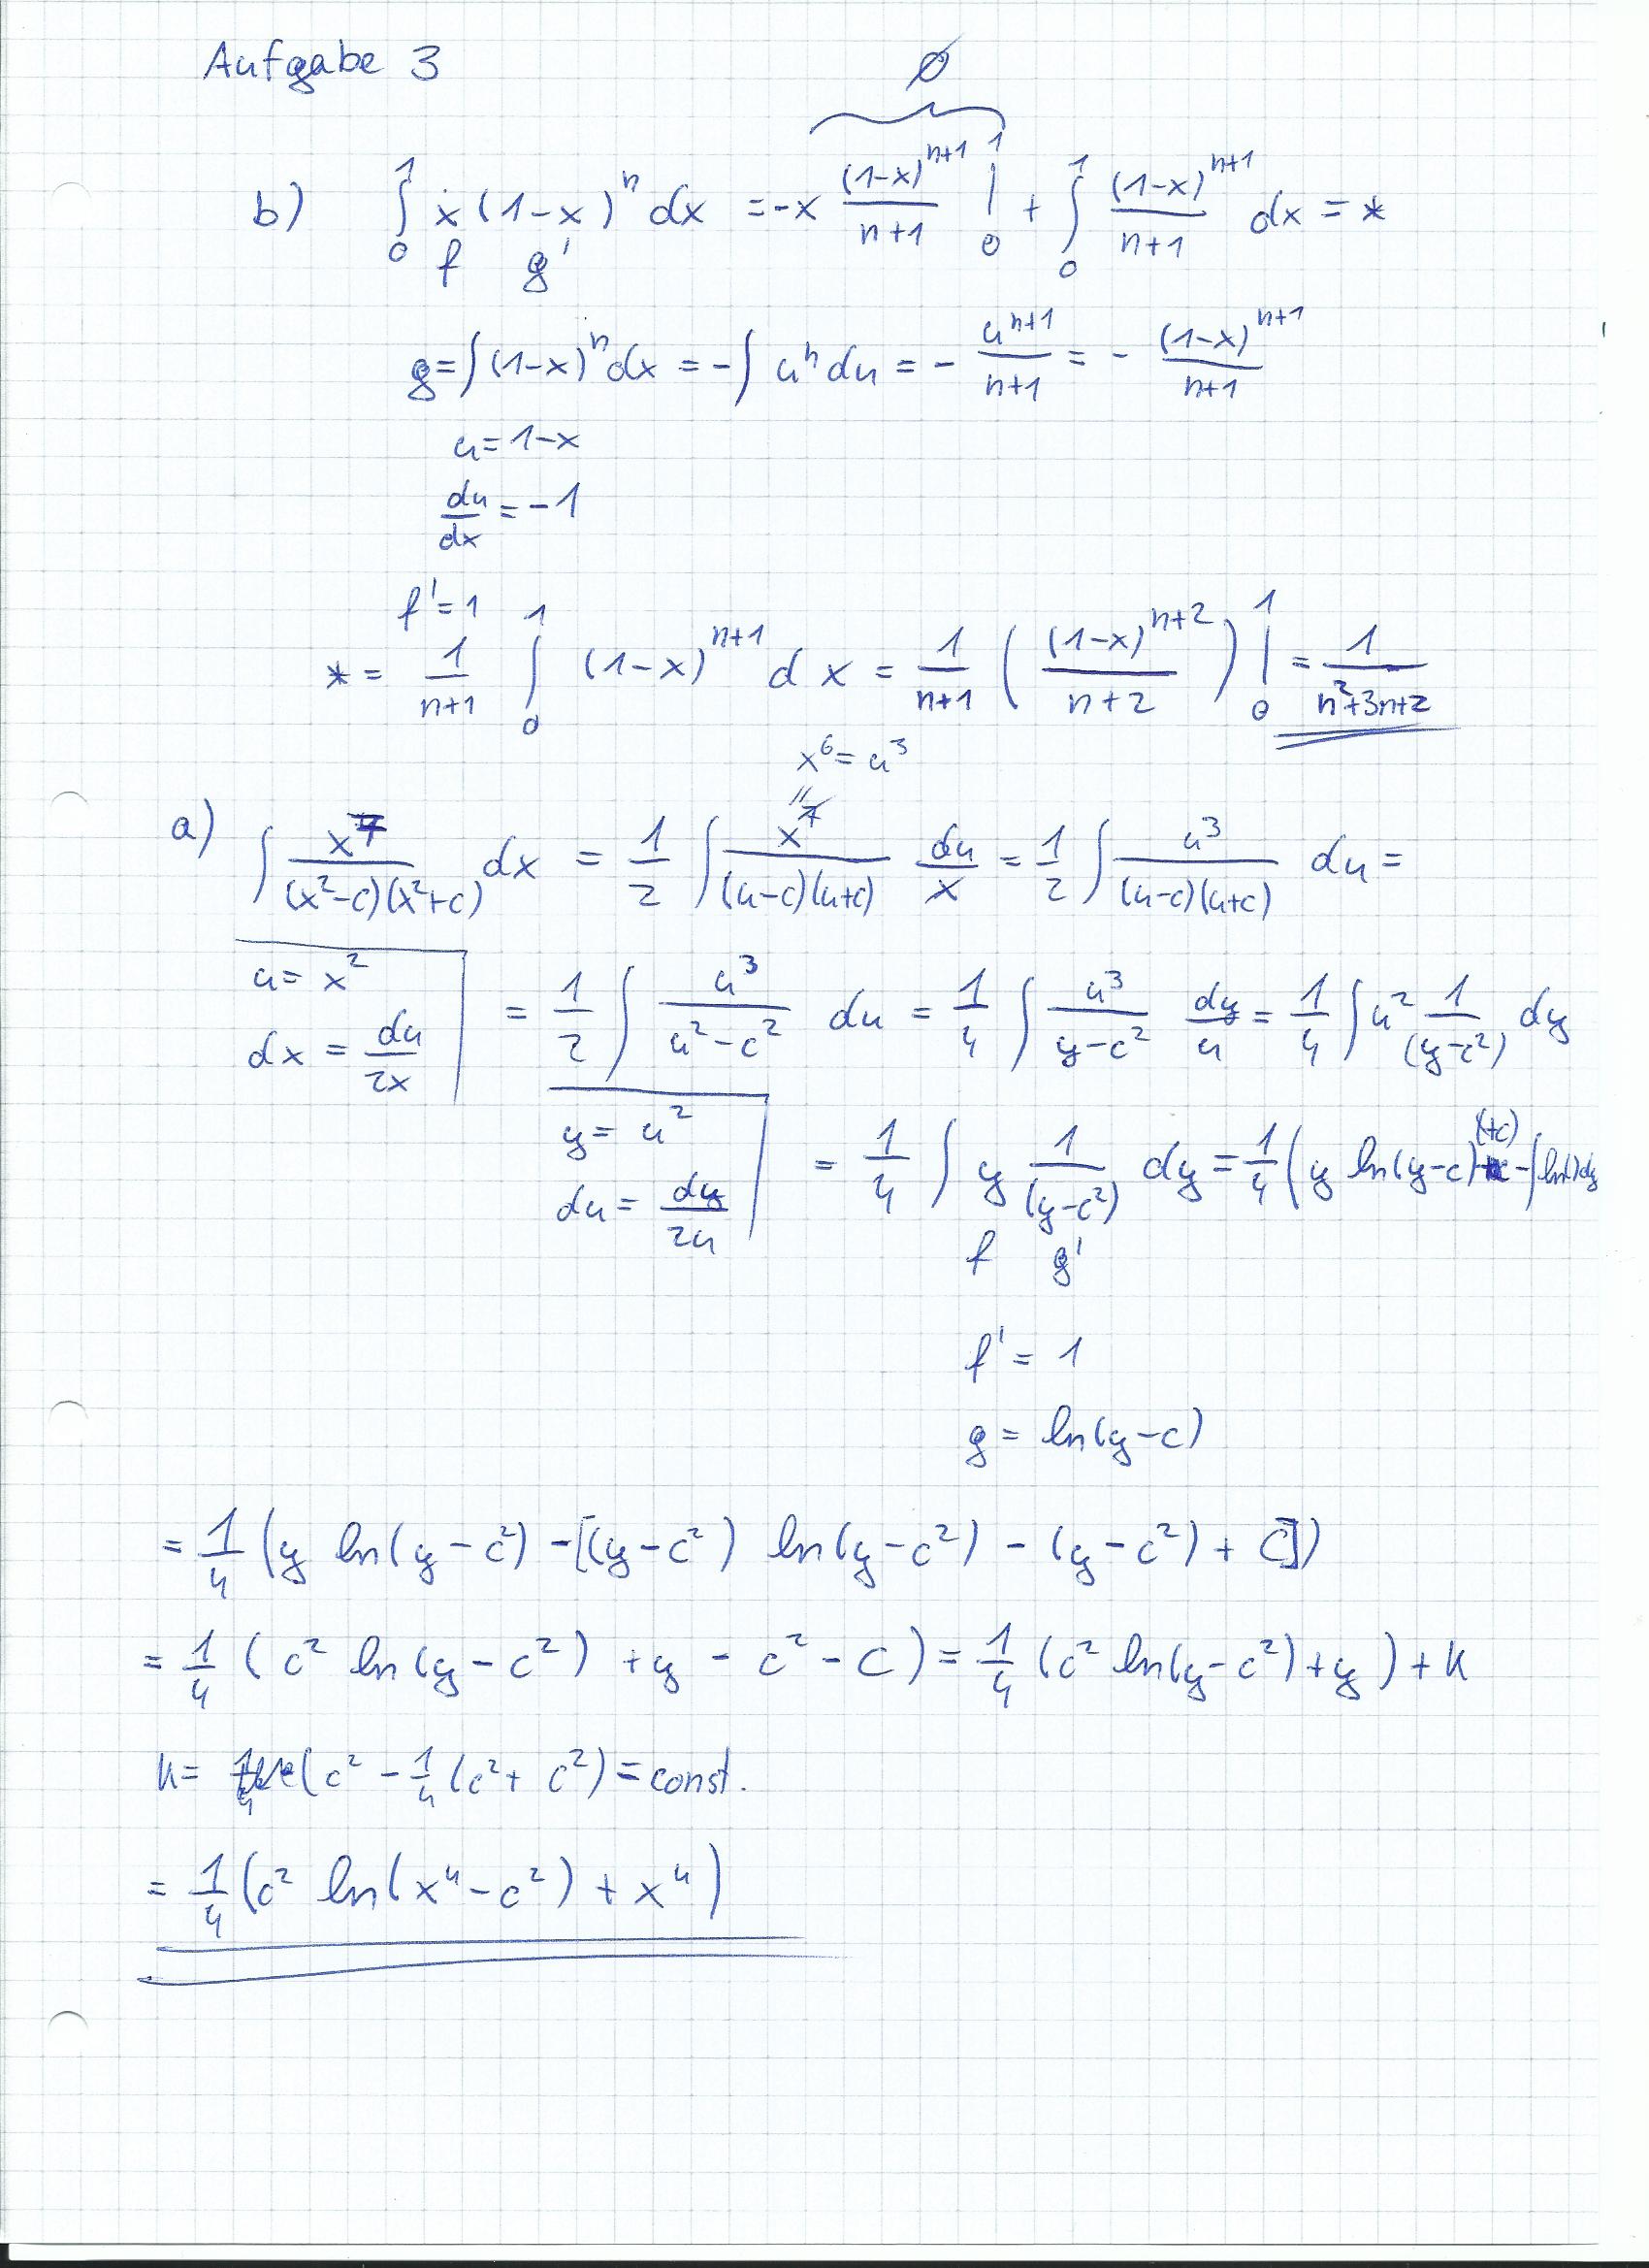 Aufgabe 3
∅
b) ∫₀¹ x (1-x)ⁿ dx = -x (1-x)ⁿ⁺¹/(n+1) |₀¹ + ∫₀¹ (1-x)ⁿ⁺¹/(n+1) dx = *
f g'
g = ∫(1-x)ⁿ dx = -∫ uⁿ du = - uⁿ⁺¹/(n+1) = - (1-x)ⁿ⁺¹/(n+1)
u = 1-x
du/dx = -1
f' = 1
* = 1/(n+1) ∫₀¹ (1-x)ⁿ⁺¹ dx = 1/(n+1) ( (1-x)ⁿ⁺²/(n+2) ) |₀¹ = 1/(n²+3n+2)
x⁶ = u³
a) ∫ x⁷/((x²-c)(x²+c)) dx = 1/2 ∫ x⁷/((u-c)(u+c)) du/x = 1/2 ∫ u³/((u-c)(u+c)) du =
u = x²
dx = du/2x
= 1/2 ∫ u³/(u²-c²) du = 1/4 ∫ u³/(y-c²) dy/u = 1/4 ∫ u² 1/(y-c²) dy
y = u²
du = dy/2u
= 1/4 ∫ y 1/(y-c²) dy = 1/4 (y ln(y-c) (+c) - ∫ln( )dy
f g'
f' = 1
g = ln(y-c)
= 1/4 (y ln(y-c²) - [(y-c²) ln(y-c²) - (y-c²) + C])
= 1/4 (c² ln(y-c²) + y - c² - C) = 1/4 (c² ln(y-c²) + y) + k
k = (c² - 1/4 (c² + c²) = const.
= 1/4 (c² ln(x⁴-c²) + x⁴)